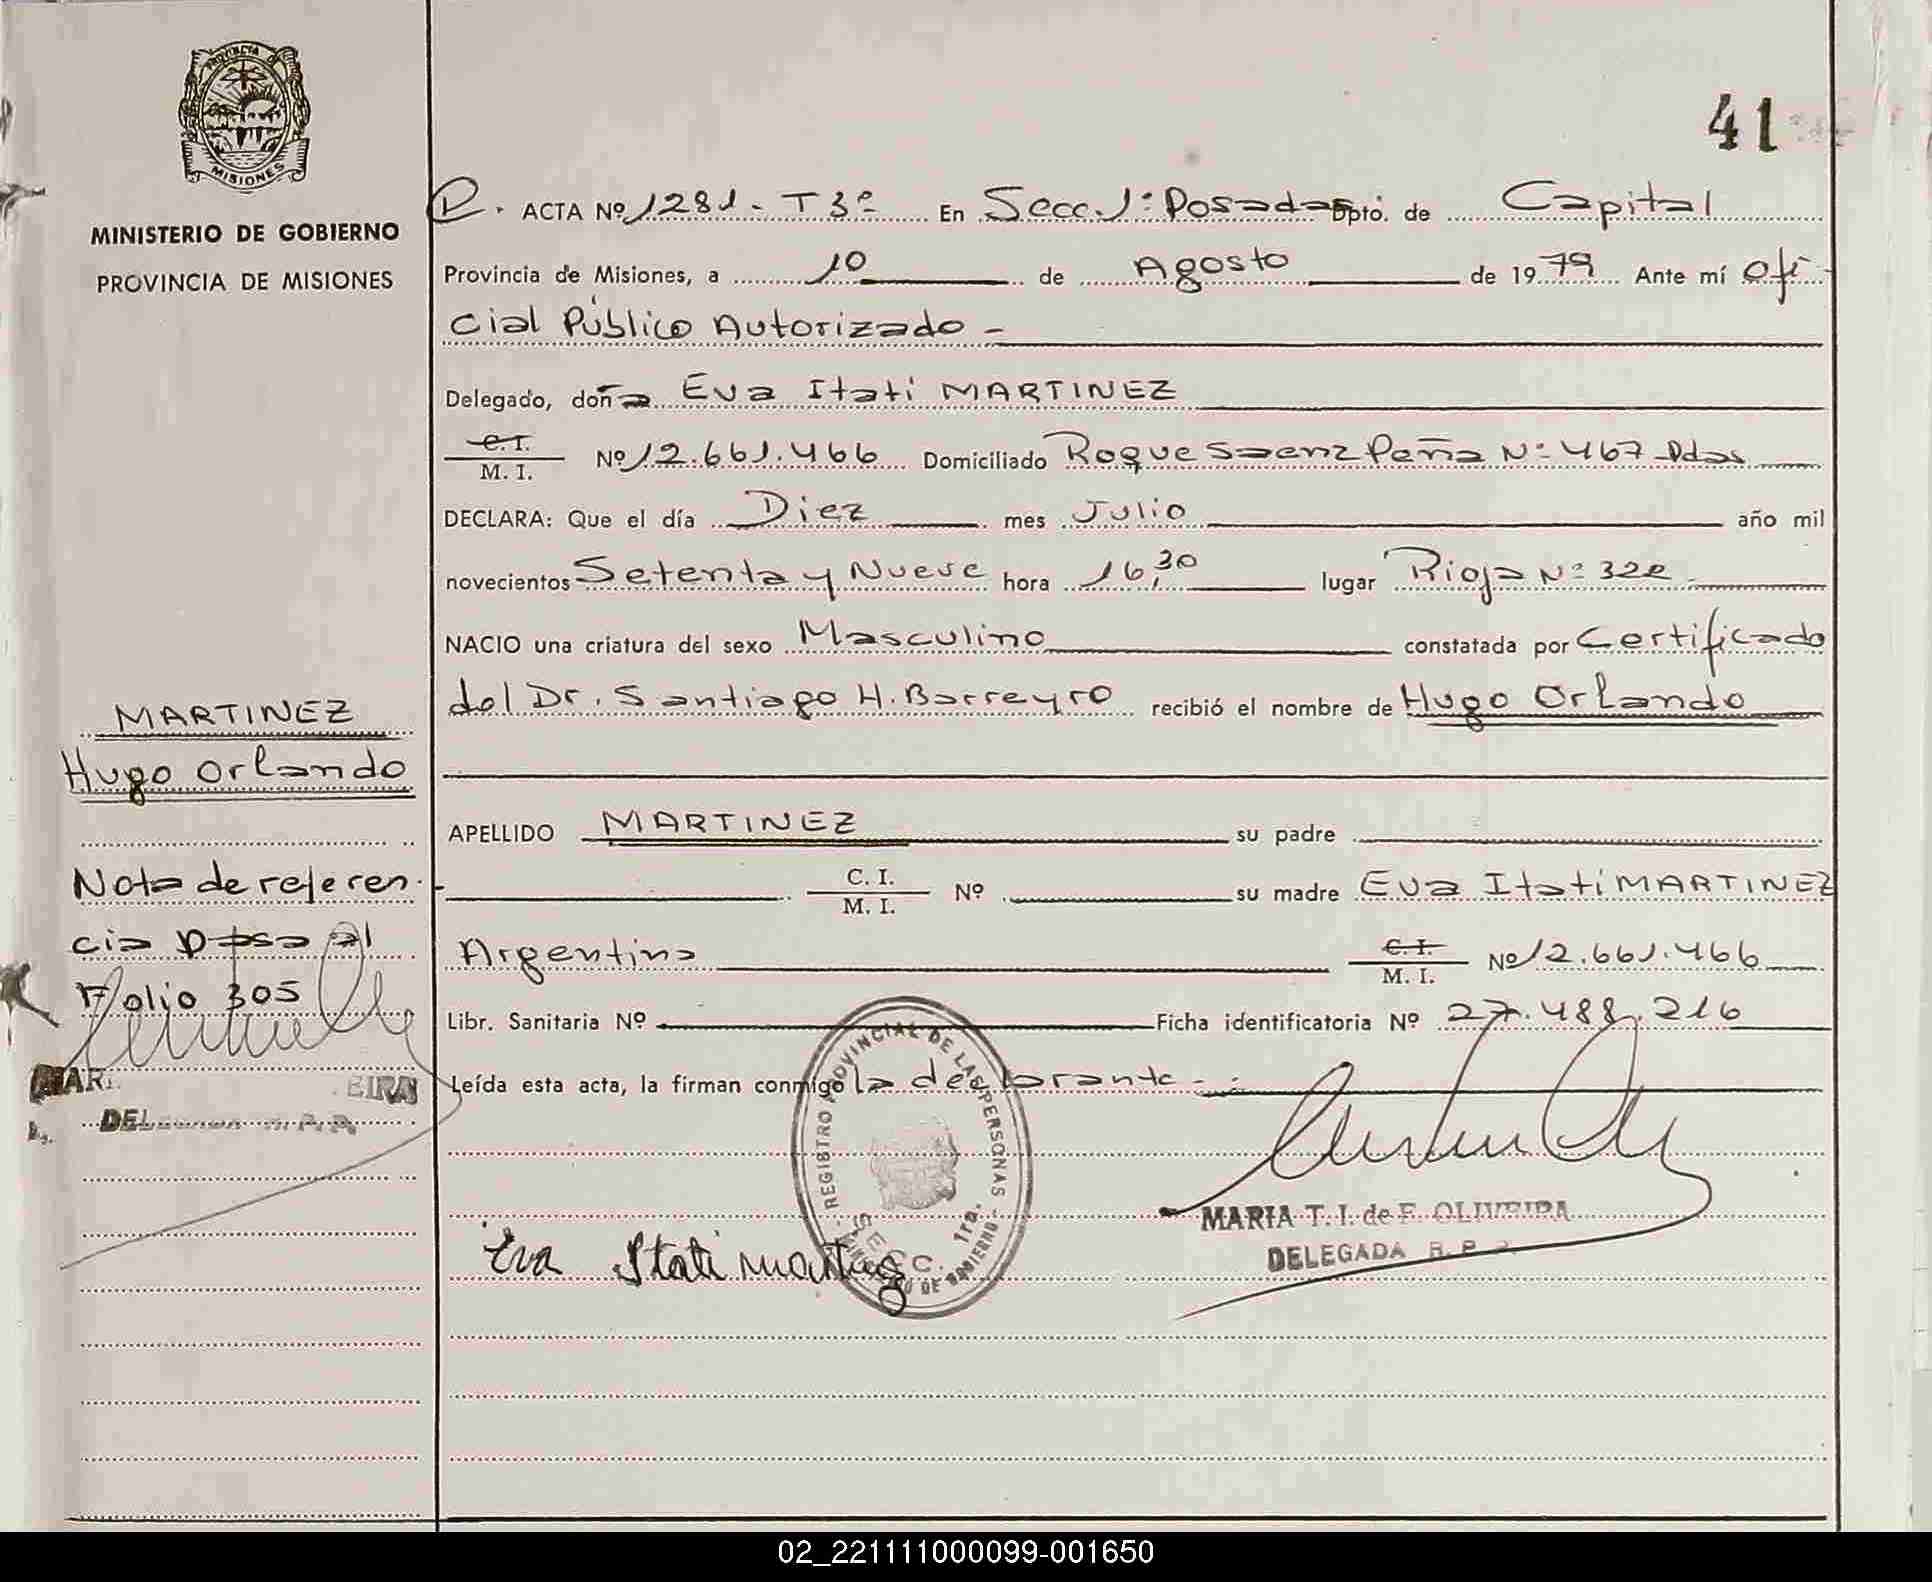 PROVINCIA DE
MISIONES
MINISTERIO DE GOBIERNO
PROVINCIA DE MISIONES
41
ACTA Nº 1281 - T 3º En Secc. 1ª Posadas Dpto. de Capital
Provincia de Misiones, a 10 de Agosto de 1979 Ante mí Ofi
cial Público Autorizado -
Delegado, doña Eva Itati MARTINEZ
C. I.
M. I. Nº 12.661.466 Domiciliado Roque Saenz Peña Nº 467 Pdas
DECLARA: Que el día Diez mes Julio año mil
novecientos Setenta y Nueve hora 16,30 lugar Rioja Nº 322
NACIO una criatura del sexo Masculino constatada por Certificado
del Dr. Santiago H. Barreyro recibió el nombre de Hugo Orlando
APELLIDO MARTINEZ su padre
C. I.
M. I. Nº su madre Eva Itati MARTINEZ
Argentina C. I.
M. I. Nº 12.661.466
Libr. Sanitaria Nº Ficha identificatoria Nº 27.488.216
Leída esta acta, la firman conmigo la declarante -
Eva Itati Martinez
REGISTRO PROVINCIAL DE LAS PERSONAS
SECC. 1ra.
DE GOBIERNO
MARIA T. I. de F. OLIVEIRA
DELEGADA R. P.
MARTINEZ
Hugo Orlando
Nota de referen
cia pasa al
Folio 305
02_221111000099-001650